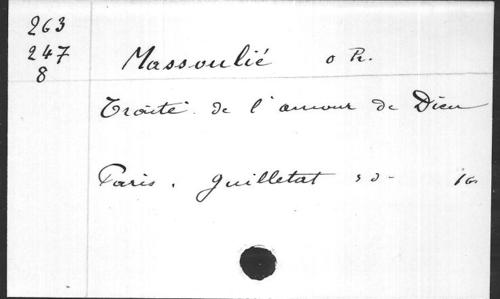 263
247
8
Massoulié o Pr.
Traité de l'amour de Dieu
Paris. Guilletat s d - 16